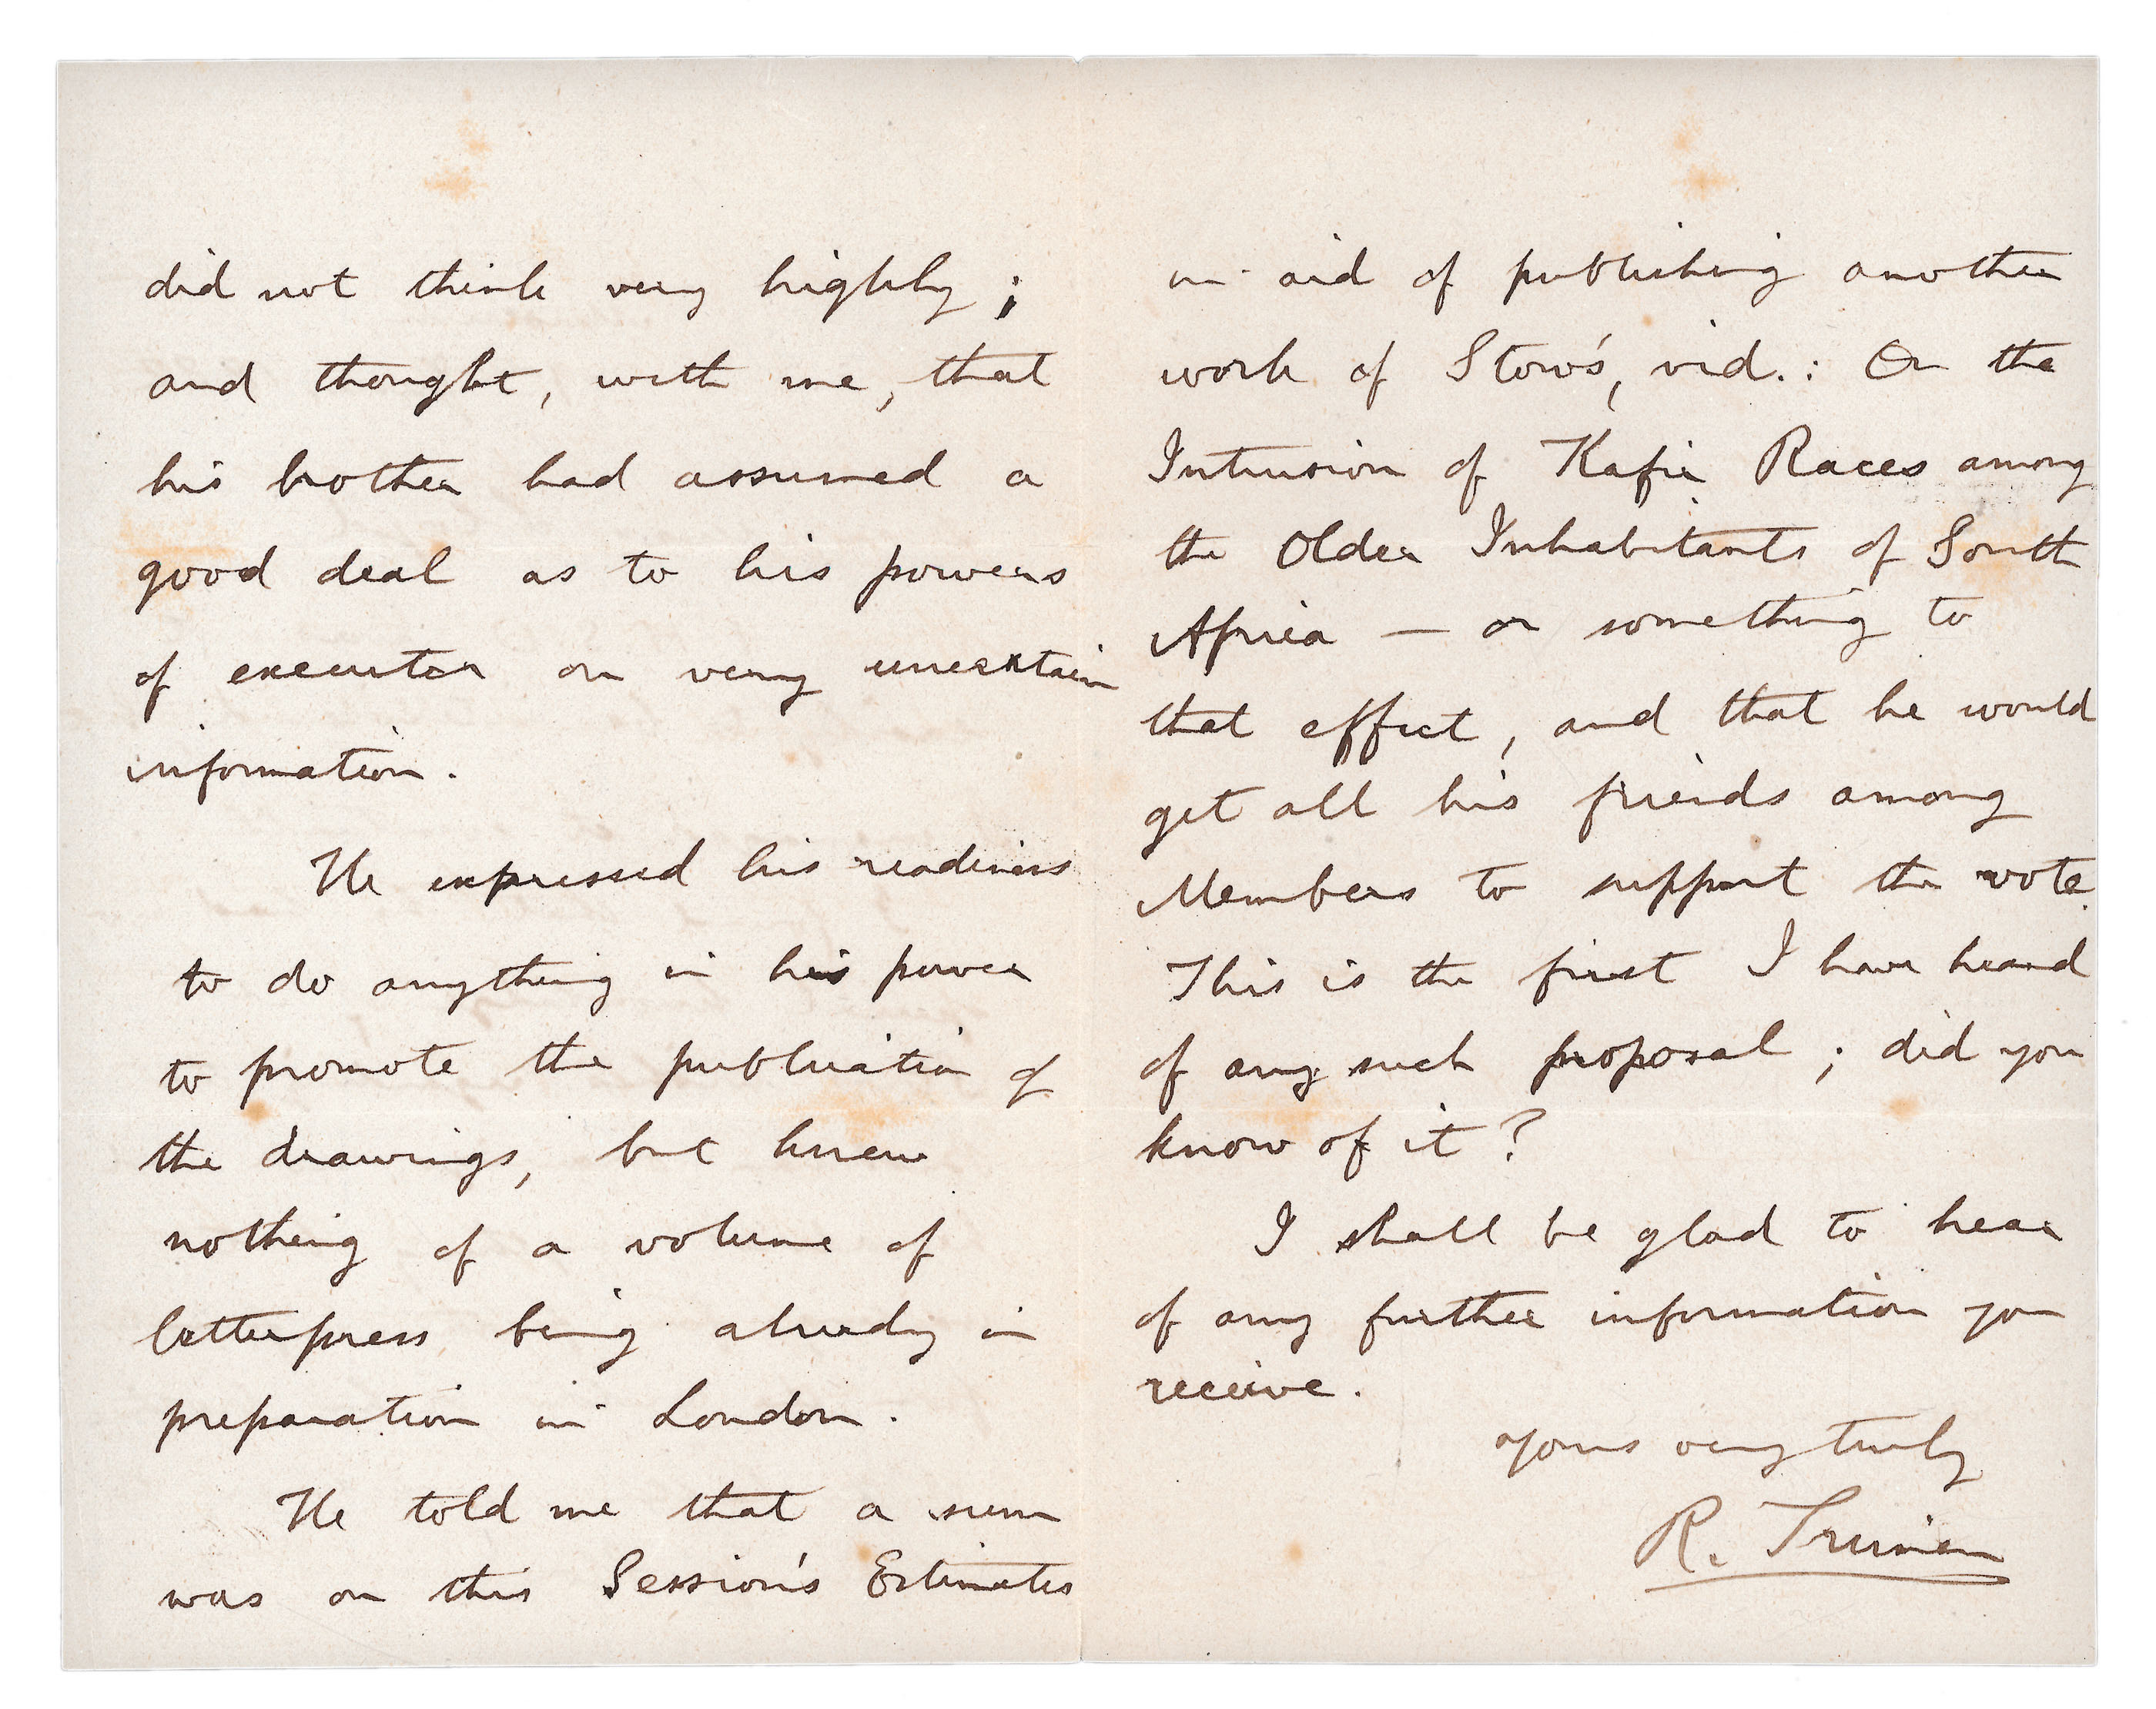 did not think very highly ;
and thought, with me, that
his brother had assumed a
good deal as to his powers
of executor on very uncertain
information.
He expressed his readiness
to do anything in his power
to promote the publication of
the drawings, but knew
nothing of a volume of
letterpress being already in
preparation in London.
He told me that a sum
was on this Session's Estimates
in aid of publishing another
work of Stow's, vid. : On the
Intrusion of Kafir Races among
the Older Inhabitants of South
Africa — or something to
that effect, and that he would
get all his friends among
Members to support the vote.
This is the first I have heard
of any such proposal ; did you
know of it?
I shall be glad to hear
of any further information you
receive.
Yours very truly
R. Trimen